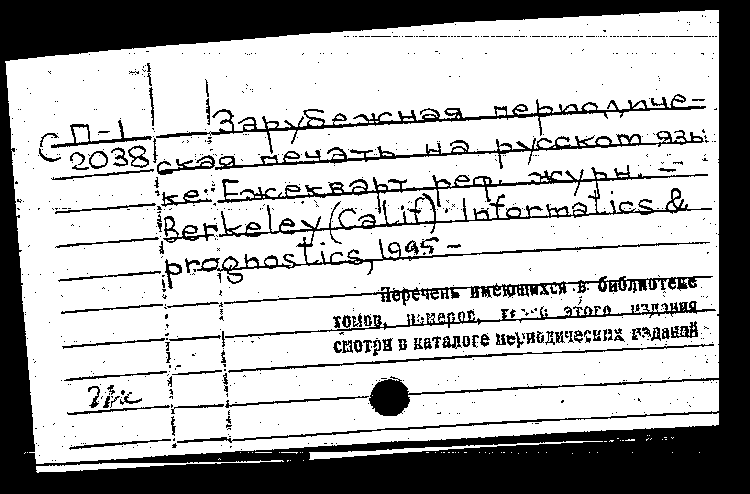 С П-1
2038
Зарубежная периодиче-
ская печать на русском язы
ке: Ежекварт. реф. журн. —
Berkeley (Calif): Informatics &
prognostics, 1995 –
Перечень имеющихся в библиотеке
томов, номеров, этого издания
смотри в каталоге периодических изданий